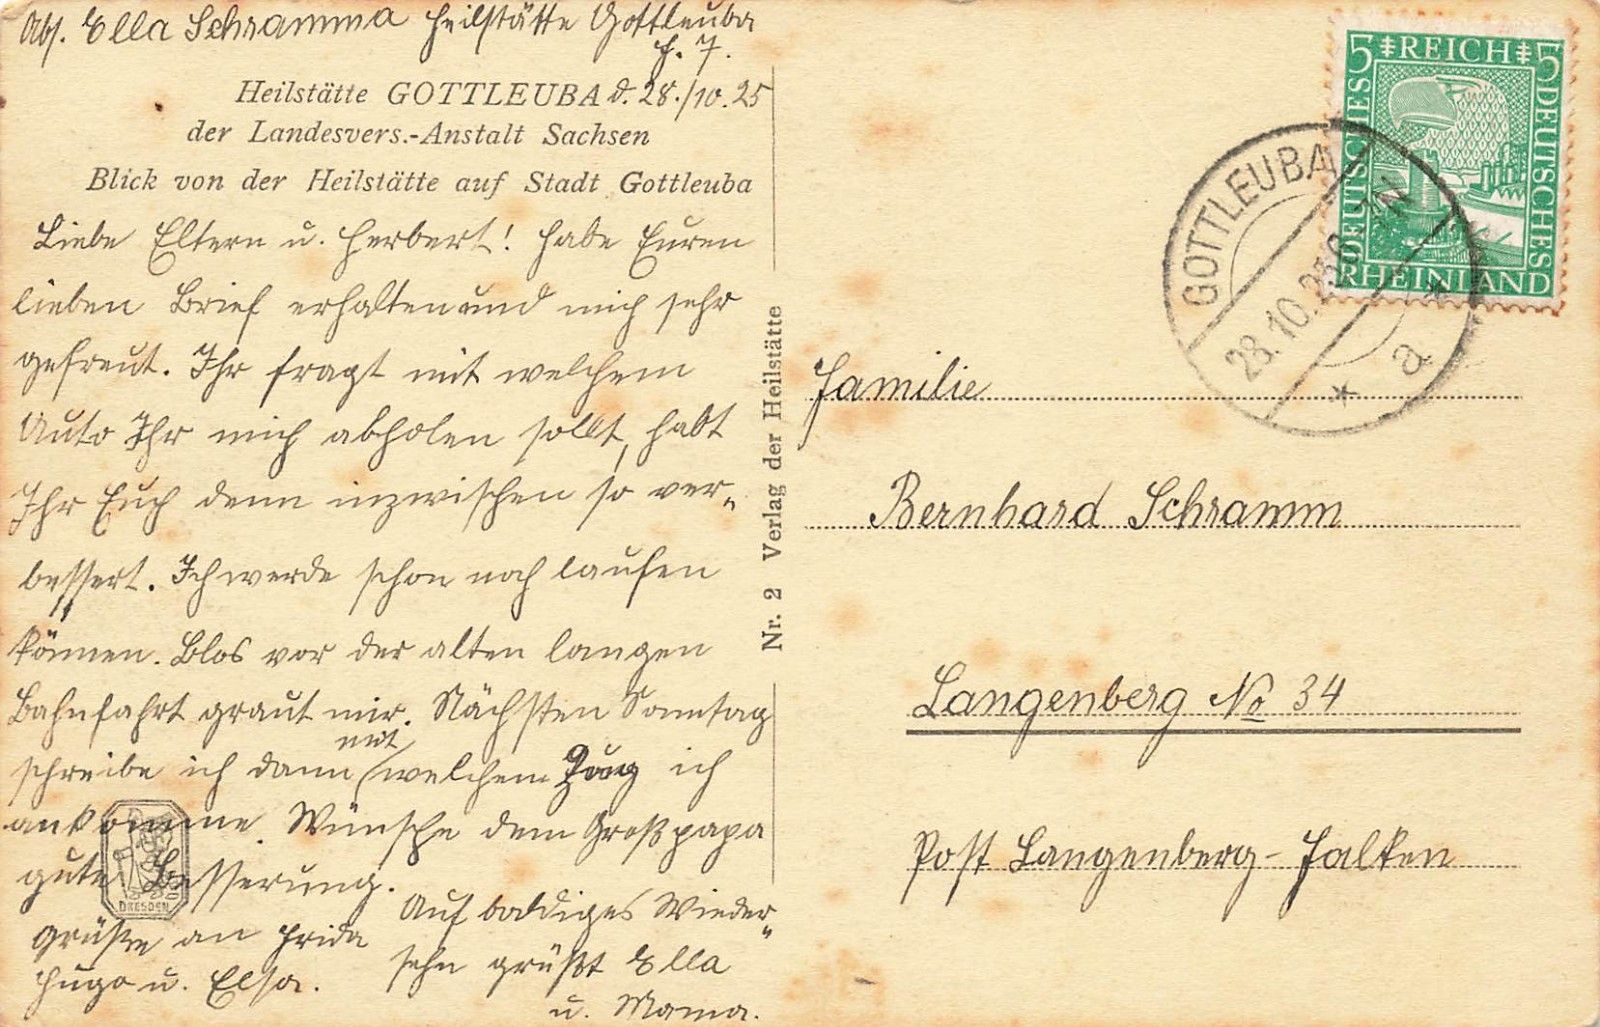 Abs. Ella Schramma Heilstätte Gottleuba
H. 7.
Heilstätte GOTTLEUBA d. 28./10.25
der Landesvers.-Anstalt Sachsen
Blick von der Heilstätte auf Stadt Gottleuba
Liebe Eltern u. Herbert! Habe Euren
lieben Brief erhalten und mich sehr
gefreut. Ihr fragt mit welchem
Auto Ihr mich abholen sollt, habt
Ihr Euch denn inzwischen so ver-
bessert. Ich werde schon noch laufen
können. Blos vor der alten langen
Bahnfahrt graut mir. Nächsten Sonntag
schreibe ich dann mit welchem Zug ich
ankomme. Wünsche dem Großpapa
gute Besserung.
Grüße an Frida
Hugo u. Elsa.
Auf baldiges Wieder-
sehn grüßt Ella
u. Mama.
DRESDEN
Nr. 2 Verlag der Heilstätte
5 REICH 5
DEUTSCHES
DEUTSCHES
RHEINLAND
GOTTLEUBA
28.10.25
a
Familie
Bernhard Schramm
Langenberg No 34
Post Langenberg-Falken